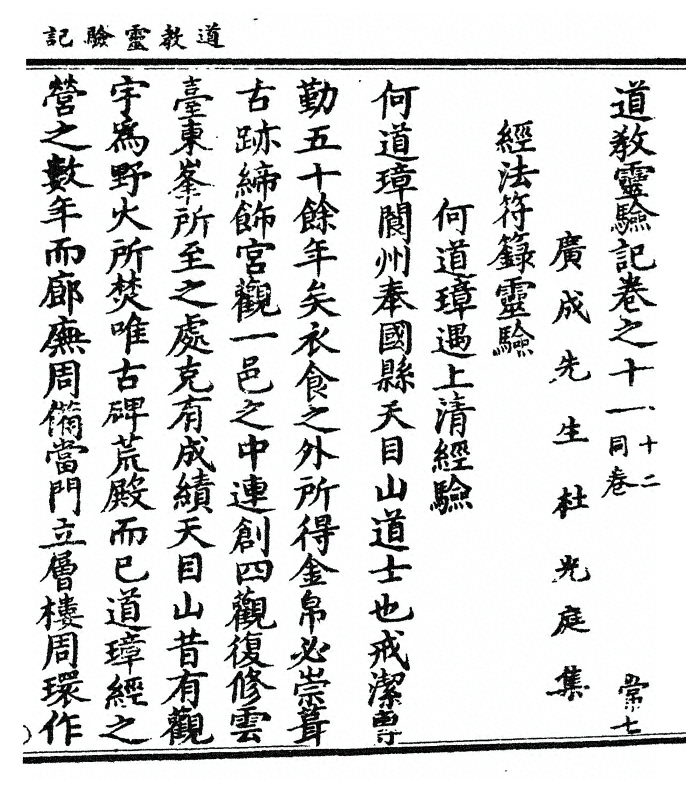 道教靈驗記
道教靈驗記卷之十一、十二同卷 常七
廣成先生杜光庭集
經法符籙靈驗
何道璋遇上清經驗
何道璋閬州奉國縣天目山道士也戒潔專
勤五十餘年矣衣食之外所得金帛必崇葺
古跡締飾宮觀一邑之中連創四觀復修雲
臺東峯所至之處克有成績天目山昔有觀
宇為野火所焚唯古碑荒殿而已道璋經之
營之數年而廊廡周備當門立層樓周環作